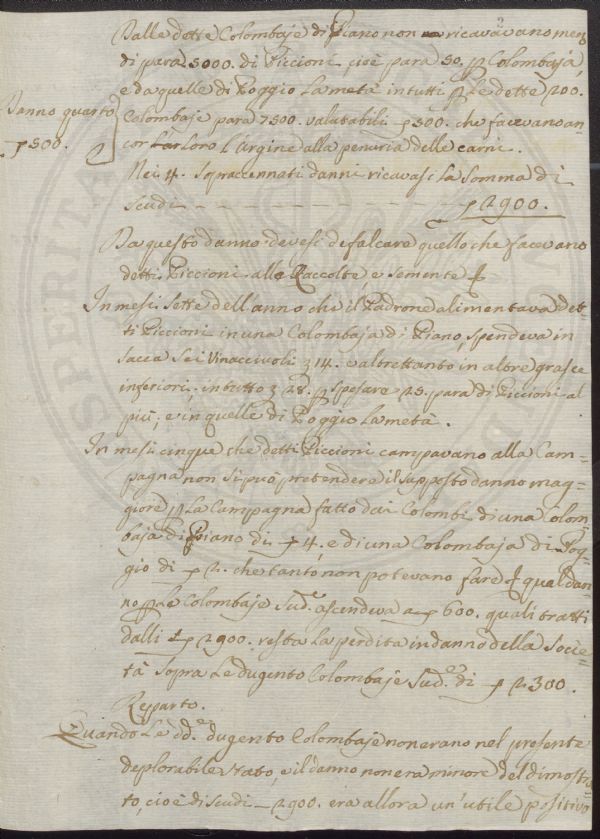 2
Dalle dette Colombaje di Piano non ricavavano men
di para 5000. di Piccioni, cioè para 50. p Colombaja,
e da quelle di Poggio la metà in tutti p le dette 200.
Danno quarto
Colombaje para 7500. valutabili 500. che facevano an
500.
cor loro l'argine alla penuria delle carni.
Nei 4. sopraccennati danni ricavasi la somma di
scudi 2900.
Da questo danno devesi defalcare quello che facevano
detti Piccioni alle Raccolte, e semente
In mesi sette dell'anno che il Padrone alimentava det-
ti Piccioni in una Colombaja di Piano, spendeva in
sacca sei Vinacciuoli 14. e altrettanto in altre grasce
inferiori, in tutto 28. p sfesare 25. para di Piccioni al
più, e in quelle di Poggio la metà.
In mesi cinque che detti Piccioni campavano alla Cam-
pagna non si può pretendere il supposto danno mag-
giore p la Campagna fatto dai Colombi di una Colom
baja di Piano di 4. e di una Colombaja di Pog-
gio di 2. che tanto non potevano fare qual dan-
no p le Colombaje Sud.e ascendeva a 600. quali tratti
dalli 2900. resta la perdita in danno della Socie-
tà sopra le dugento Colombaje Sud.e di 2300.
Reparto.
Quando le dd.e dugento Colombaje non erano nel presente
deplorabile stato, e il danno non era minore del dimostra
to, cioè di scudi 2900. era allora un'utile positivo